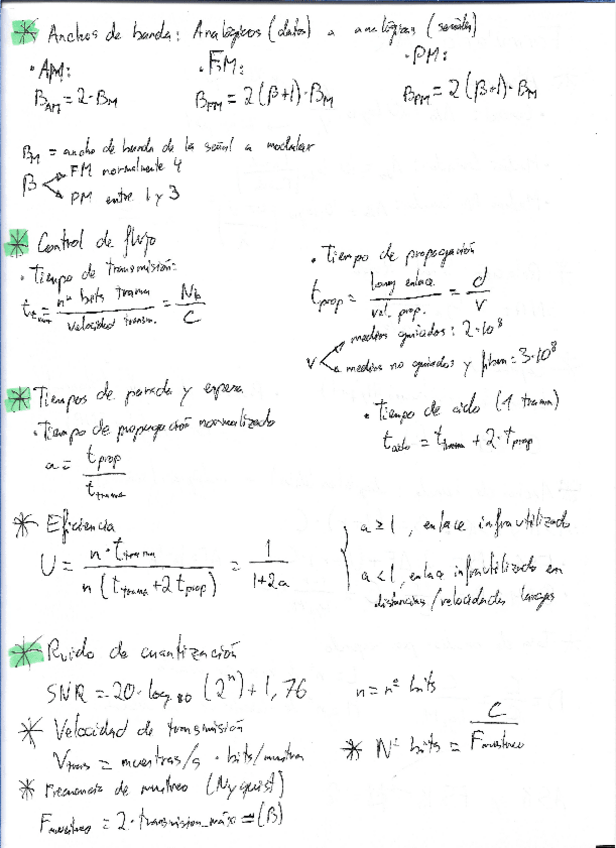 * Anchos de banda: Analógicos (datos) a analógicas (señales)
· AM:   · FM:   · PM:
B_AM = 2·B_M   B_FM = 2(β+1)·B_M   B_PM = 2(β+1)·B_M
B_M = ancho de banda de la señal a modular
β FM normalmente 4
PM entre 1 y 3
* Control de flujo
· Tiempo de transmisión:
t_trama = nº bits trama / velocidad transm. = N_b / C
· Tiempo de propagación
t_prop = long enlace / vel. prop. = d / v
v medios guiados: 2·10^8
medios no guiados y = 3·10^8
* Tiempos de parada y espera
· Tiempo de propagación normalizado
a = t_prop / t_trama
· Tiempo de ciclo (1 trama)
t_ciclo = t_trama + 2·t_prop
* Eficiencia
U = n·t_trama / n(t_trama + 2 t_prop) = 1 / 1+2a
a ≥ 1, enlace infrautilizado
a < 1, enlace infrautilizado en
distancias/velocidades largas
* Ruido de cuantización
SNR = 20·log_10 (2^n) + 1,76   n = nº bits
* Velocidad de transmisión
V_trans = muestras/s · bits/muestra
* Nº bits = C / F_muestreo
* Frecuencia de mutreo (Nyquist)
F_muestreo = 2·transmision_máx = (B)